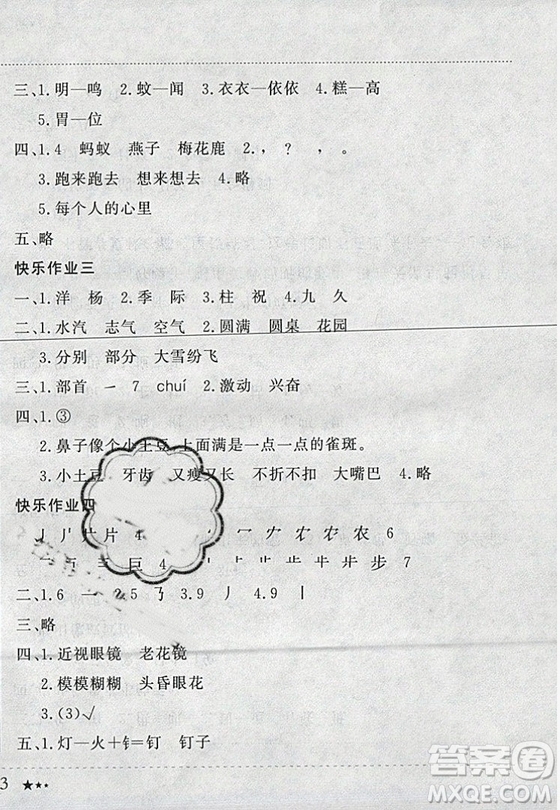 三、1.明—鸣 2.蚊—闻 3.衣衣—依依 4.糕—高
5.胃—位
四、1.4 蚂蚁 燕子 梅花鹿 2., ? , 。
3.跑来跑去 想来想去 4.略
5.每个人的心里
五、略
快乐作业三
一、1.洋 杨 2.季 际 3.柱 祝 4.九 久
二、1.水汽 志气 空气 2.圆满 圆桌 花园
3.分别 部分 大雪纷飞
三、1.部首 一 7 chuí 2.激动 兴奋
四、1.③
2.鼻子像个小土豆,上面满是一点一点的雀斑。
3.小土豆 牙齿 又瘦又长 不折不扣 大嘴巴 4.略
快乐作业四
丿 丿丨 片 片 4 农 农 农 6
巨 4 丨 ⺊ 止 止 步 步 步 7
二、1.6 一 2.5 3.9 丿 4.9 丨
三、略
四、1.近视眼镜 老花镜
2.模模糊糊 头昏眼花
3.(3)√
五、1.灯—火+钅=钉 钉子
3 ★★★
答案圈
MXQE.COM